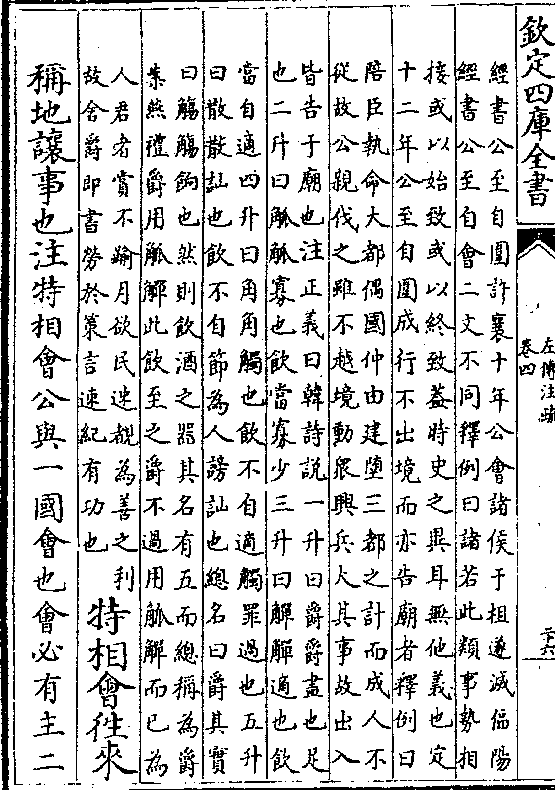 欽定四庫全書
左傳注疏
卷四
二十六
經書公至自圍許襄十年公會諸侯于柤遂滅偪陽
經書公至自會二文不同釋例曰諸若此類事勢相
接或以始致或以終致蓋時史之異耳無他義也定
十二年公至自圍成行不出境而亦告廟者釋例曰
陪臣執命大都偶國仲由建墮三都之計而成人不
從故公親伐之雖不越境動衆興兵大其事故出入
皆告于廟也注正義曰韓詩說一升曰爵爵盡也足
也二升曰觚觚寡也飲當寡少三升曰觶觶適也飲
當自適四升曰角角觸也飲不自適觸罪過也五升
曰散散訕也飲不自節為人謗訕也總名曰爵其實
曰觴觴餉也然則飲酒之器其名有五而總稱為爵
案燕禮爵用觚觶此飲至之爵不過用觚觶而已為
人君者賞不踰月欲民速覩為善之利
故舍爵即書勞於策言速紀有功也
特相會往來
稱地讓事也注特相會公與一國會也會必有主二